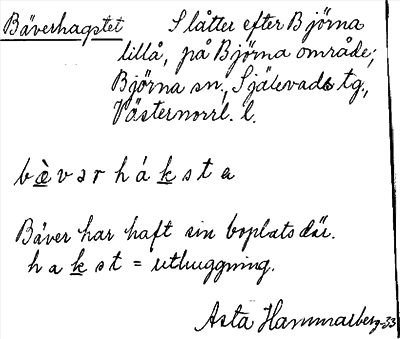 Bäverhagstet Slåtter efter Björna
lillå, på Björna område;
Björna sn., Själevads tg.,
Västernorrl. l.
bæ̀vərháksta
Bäver har haft sin boplats där.
hakst = uthuggning.
Asta Hammarberg-33